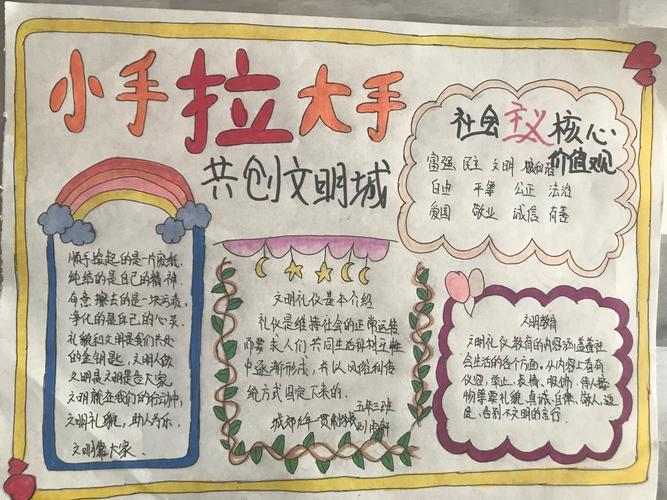 小手拉大手
共创文明城
社会主义核心
价值观
富强 民主 文明
自由 平等 公正 法治
爱国 敬业 诚信 友善
顺手捡起的是一片废纸
纯洁的是自己的精神
有意擦去的是一块污表
净化的是自己的心灵
礼貌和文明是我们共处
的金钥匙,文明人做
文明是文明是靠大家
文明就在我们的行动中,
文明礼貌,助人为乐.
文明靠大家.
文明礼仪基本介绍
礼仪是维持社会的正常运转
而要求人们共同
中逐渐形成,并以风俗
方式固定下来的.
五年三班
文明教育
文明礼仪教育的内容涵盖着社
会生活的各个方面。从内容上看有
仪容,举止,表情,服饰,待人接
物等 礼貌,真诚,自律,敬人,适
度,告别不文明的言行.